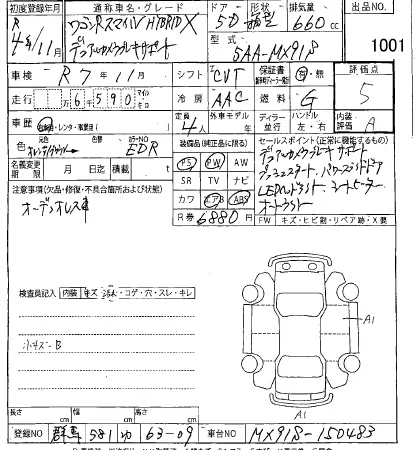 初度登録年月 通称車名・グレード ドア 形状 排気量 出品NO
R 4年11月 ワゴンRスマイル HYBRID X 5D 箱型 660cc
デュアルカメラブレーキサポート 型式 5AA-MX91S 1001
車検 R7年11月 シフト CVT 保証書 有・無 評価点
走行 万6千590 マイル キロ 冷房 AAC 燃料 G 5
車歴 自家用・レンタ・ 定員 4人 外車モデル 年 ディーラー 並行 ハンドル 左・右 内装評価 A
色 元色 色替 カラーNO EDR
装備品(純正品に限る) セールスポイント(正常に機能するもの)
名義変更期限 月 日 積載 t
PS PW AW デュアルカメラブレーキサポート
SR TV ナビ プッシュスタート、パワースライドドア
注意事項(欠品・修復・不具合箇所および状態) カワ エアB ABS LEDヘッドライト、シートヒーター
オーディオレス車 オートライト
R券 6880円 FW キズ・ヒビ割・リペア跡・X要
検査員記入 内装 キズ・コゲ・穴・スレ・キレ
A1
小キズ-B
A1
長さ cm 幅 cm 高さ cm
登録NO 群馬 581 ゆ 63-09 車台NO MX91S-150483